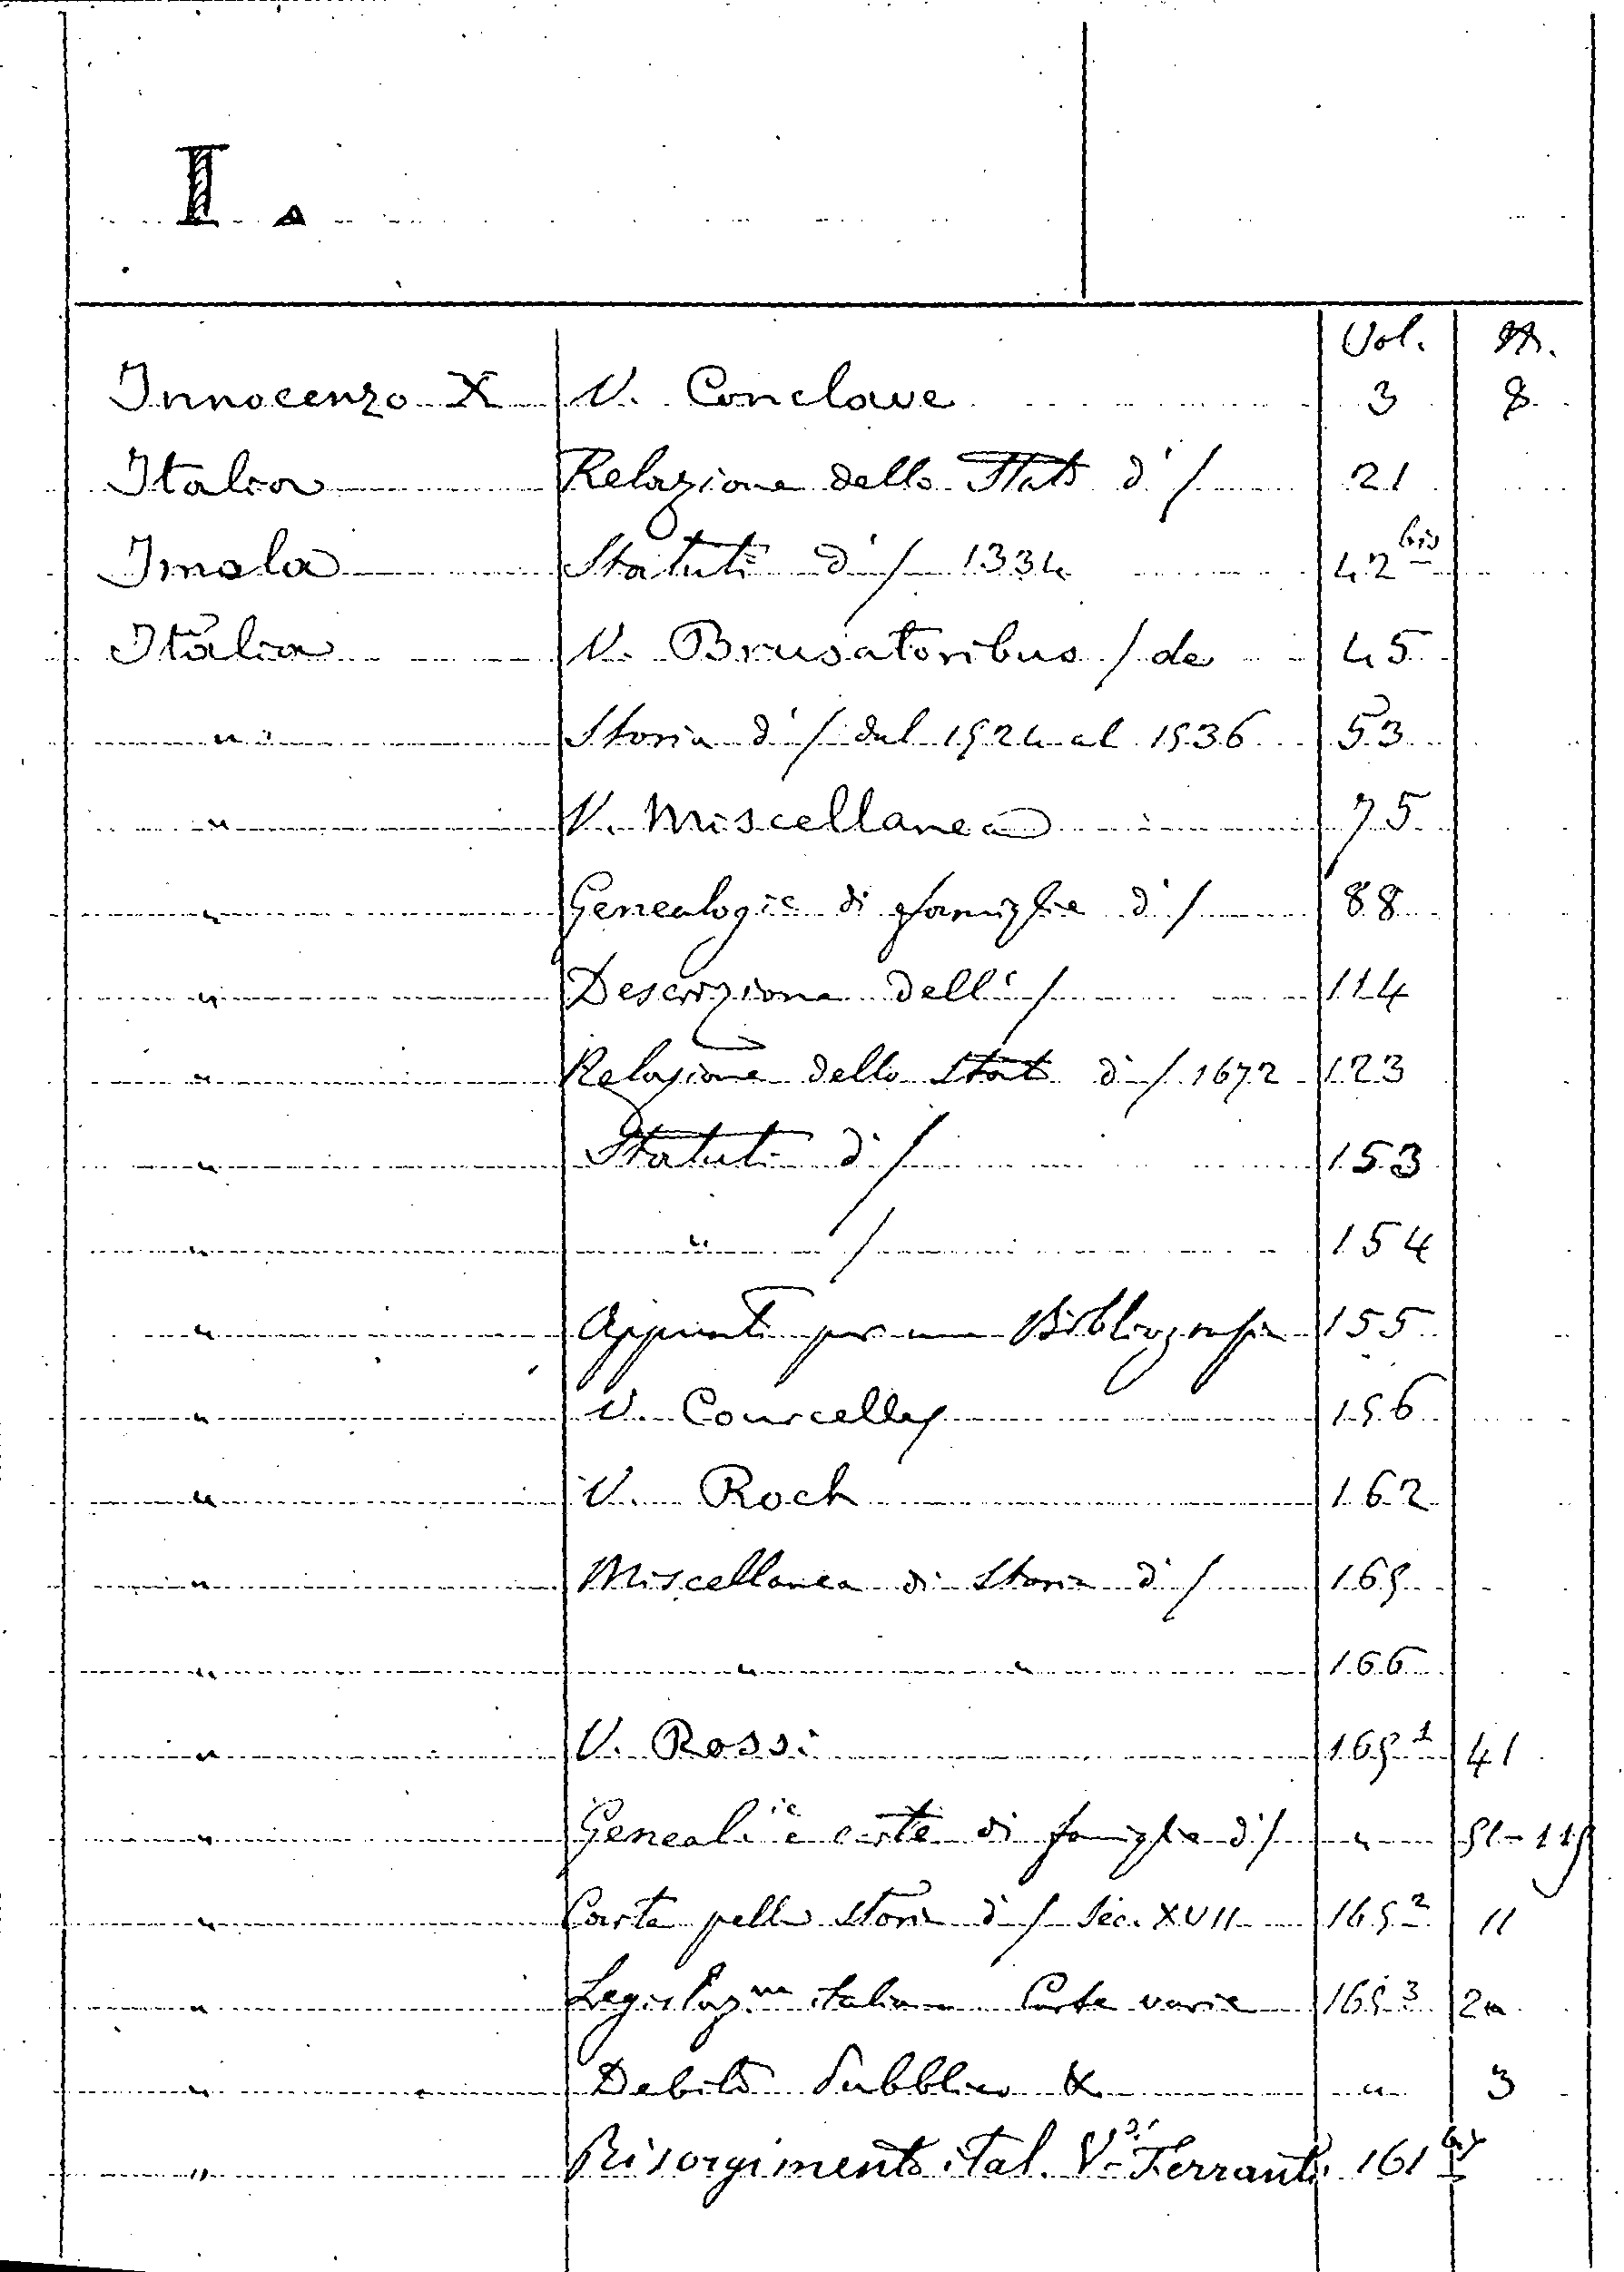 I.
Vol. N.
Innocenzo X V. Conclave 3 8
Italia Relazione dello Stato d' / 21
Imola Statuti d' / 1334 42 bis
Italia V. Brusatoribus / de 45
" Storia d' / dal 1524 al 1536 53
" V. Miscellanea 75
" Genealogie di famiglie d' / 88
" Descrizione dell' / 114
" Relazione dello Stato d' / 1672 123
" Statuti d' / 153
" " / 154
" Appunti per una Bibliografia 155
" V. Courcelles 156
" V. Roch 162
" Miscellanea di Storia d' / 165
" " " 166
" V. Rossi 165 1 41
" Geneal ie e carte di famiglie d' / " 51-115
" Carte pella Storia d' / Sec. XVII 165 2 11
" Legislazne italiana Carte varie 165 3 2a
" Debito Pubblico & " 3
" Risorgimento ital. V. Di Ferranti 161 bis